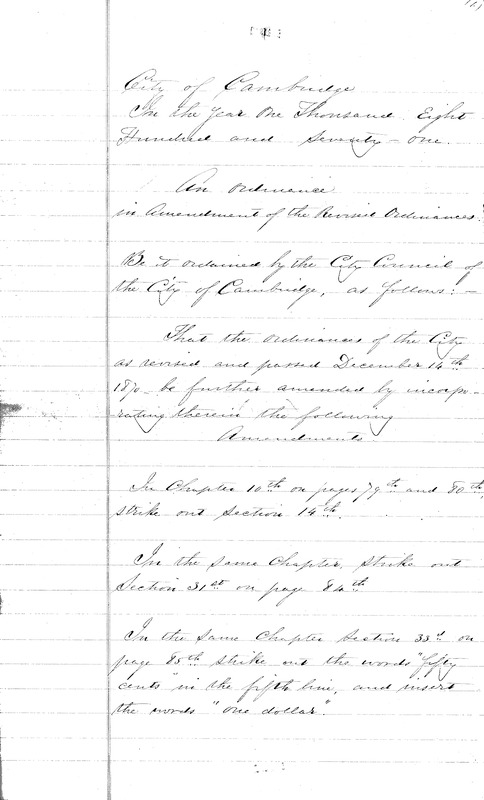 City of Cambridge
In the Year One Thousand Eight
Hundred and Seventy-one.
An Ordinance
in Amendment of the Revised Ordinances.
Be it ordained by the City Council of
the City of Cambridge, as follows:-
That the Ordinances of the City
as revised and passed December 14th
1870 be further amended by incorpo-
rating therein the following
Amendments
In Chapter 10th on pages 79th and 80th,
strike out Section 14th.
In the same Chapter, strike out
Section 31st on page 84th
In the same Chapter Section 33d on
page 85th strike out the words "fifty
cents" in the fifth line, and insert
the words "one dollar".